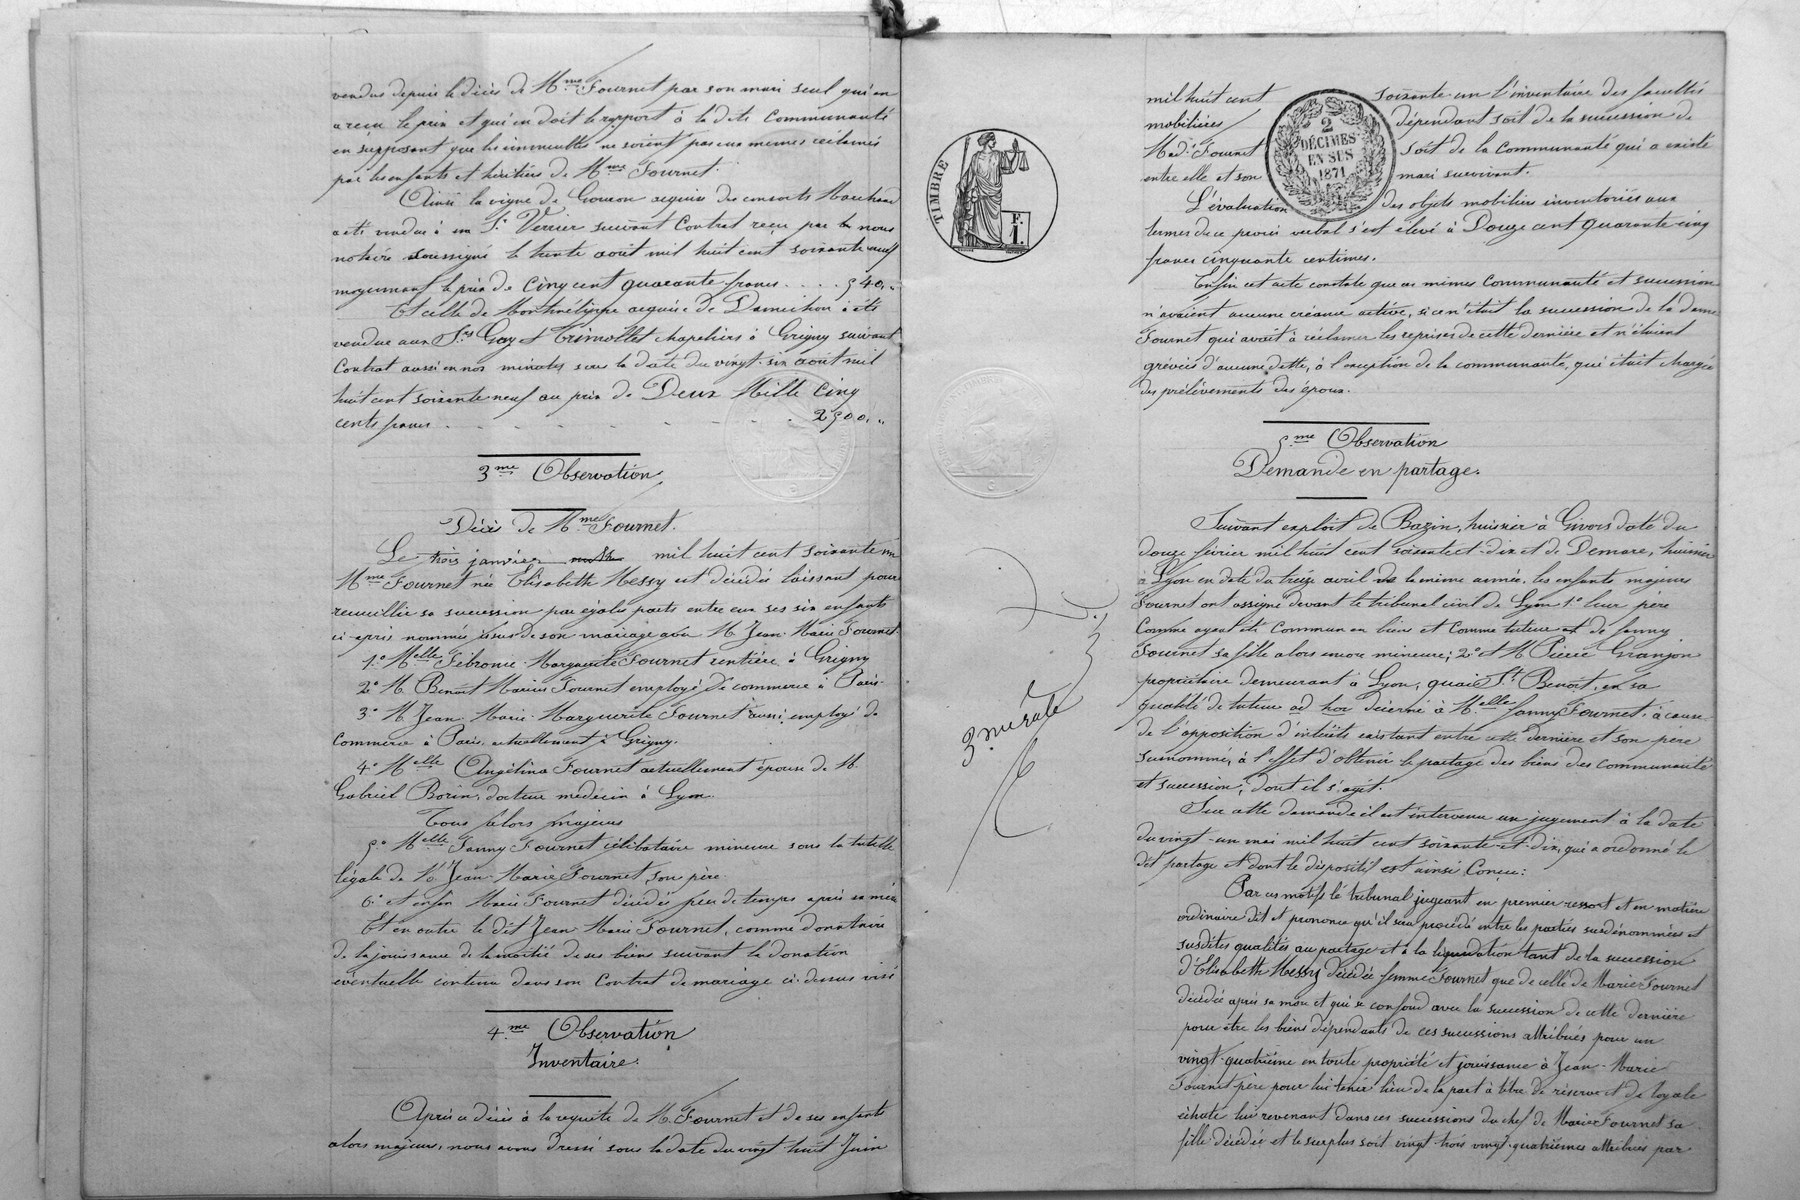 vendus depuis le décès de Mme Fournet par son mari seul qui en
a reçu le prix et qui en doit le rapport à la dite Communauté
en supposant que les immeubles ne soient pas eux mêmes réclamés
par les enfants et héritiers de Mme Fournet.
Ainsi la vigne de acquise des consorts Marchand
a été vendue à un Sr. Verrier suivant Contrat reçu par nous
notaire soussigné le trente août mil huit cent soixante neuf
moyennant le prix de Cinq cent quarante francs . . . . 540. "
Et celle de acquise de Dameihon a été
vendue aux Srs Gay & Trimollet chapeliers à Grigny suivant
Contrat aussi en nos minutes sous la date du vingt-six août mil
huit cent soixante neuf au prix de Deux Mille Cinq
cents francs . . . . . . . . . 2500. "
3me Observation
Décès de Mme Fournet.
Le trois janvier mil huit cent soixante un
Mme Fournet née Elisabeth Messy est décédée laissant pour
recueillir sa succession par égales parts entre eux ses six enfants
ci-après nommés issus de son mariage avec M. Jean-Marie Fournet.
1.o Melle Fébronie Marguerite Fournet rentière à Grigny
2.o M. Benoît Marius Fournet employé de commerce à Paris.
3.o M. Jean-Marie-Marguerite Fournet aussi employé de
Commerce à Paris, actuellement à Grigny.
4.o Melle Angélina Fournet actuellement épouse de M.
Gabriel Borin, docteur médecin à Lyon.
Tous alors majeurs
5.o Melle Fanny Fournet célibataire mineure sous la tutelle
légale de M. Jean-Marie Fournet, son père
6.o et enfin Marie Fournet décédée peu de temps après sa mère
Et en outre le dit Jean Marie Fournet, comme donataire
de la jouissance de la moitié de ses biens suivant la donation
éventuelle contenue dans son Contrat de mariage ci-dessus visé
4.me Observation
Inventaire.
Après ce décès à la requête de M. Fournet et de ses enfants
alors majeurs, nous avons dressé sous la date du vingt huit Juin
TIMBRE
F.
1.
3 me rôle
2
DÉCIMES
EN SUS
1871
mil huit cent soixante un l'inventaire des facultés
mobilières dépendant soit de la succession de
Made Fournet soit de la Communauté qui a existé
entre elle et son mari survivant.
L'évaluation des objets mobiliers inventoriés aux
termes de ce procès verbal s'est élevé à Douze cent quarante cinq
francs cinquante centimes.
Enfin cet acte constate que ces mêmes Communauté et succession
n'avaient aucune créance active, si ce n'était la succession de la dame
Fournet qui avait à réclamer les reprises de cette dernière et n'étaient
grévées d'aucune dette, à l'exception de la communauté, qui était chargée
des prélèvements des époux.
5.me Observation
Demande en partage.
Suivant exploit de Bazin, huissier à Givors daté du
douze février mil huit cent soixante et-dix et de Demare, huissier
à Lyon en date du treize avril de la même année, les enfants majeurs
Fournet ont assigné devant le tribunal civil de Lyon 1.o leur père
Comme ayant été commun en biens et comme tuteur de Fanny
Fournet sa fille alors encore mineure; 2.o et M. Pierre Granjon
propriétaire demeurant à Lyon, quai St. Benoît, en sa
qualité de tuteur ad hoc décerné à Melle Fanny Fournet, à cause
de l'opposition d'intérêts existant entre cette dernière et son père
susnommé, à l'effet d'obtenir le partage des biens des communauté
et succession, dont il s'agit.
Sur cette demande il est intervenu un jugement à la date
du vingt-un mai mil huit cent soixante-et-dix, qui a ordonné le
dit partage et dont le dispositif est ainsi Conçu:
Par ces motifs le tribunal jugeant en premier ressort et en matière
ordinaire dit et prononce qu'il sera procédé entre les parties susdénommées et
susdites qualités au partage et à la liquidation tant de la succession
d'Elisabeth Messy décédée femme Fournet que de celle de Marie Fournet
décédée après sa mère et qui se confond avec la succession de cette dernière
pour être les biens dépendants de ces successions attribués pour un
vingt-quatrième en toute propriété et jouissance à Jean-Marie
Fournet père pour lui tenir lieu de la part à titre de réserve et de légale
échute lui revenant dans ces successions du chef de Marie Fournet sa
fille décédée et le surplus soit vingt-trois vingt-quatrièmes attribués par